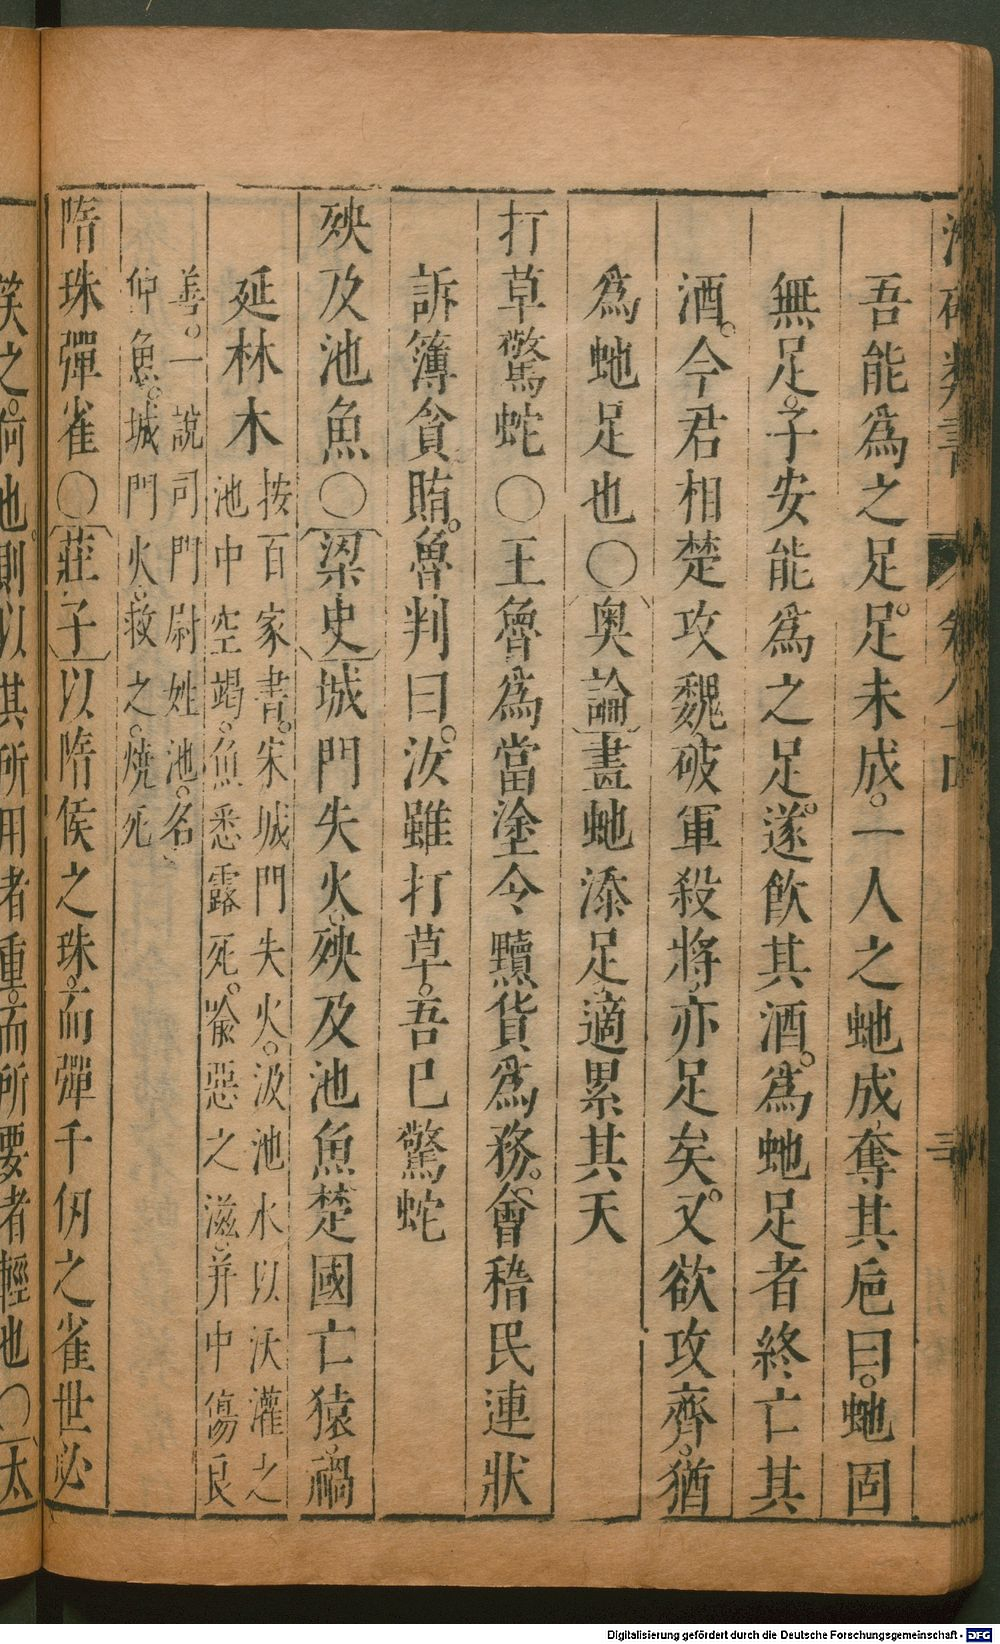 吾能爲之足。足未成。一人之虵成奪其巵曰。虵固
無足。子安能爲之足。遂飲其酒。爲虵足者終亡其
酒。今君相楚攻魏破軍殺將。亦足矣。又欲攻齊。猶
爲虵足也〇奥論畫虵添足適累其天
打草驚蛇〇王魯爲當塗令黷貨爲務。會稽民連狀
訴簿貪賄。魯判曰。汝雖打草。吾巳驚蛇
殃及池魚〇梁史城門失火。殃及池魚楚國亡猿。禍
延林木
按百家書。宋城門失火。汲池水以沃灌之
池中空竭。魚悉露死。喩惡之滋。并中傷良
善。一說司門尉姓池。名
仲魚。城門火。救之。燒死
隋珠彈雀〇莊子以隋侯之珠。而彈千仞之雀世必
笑之。何也。則以其所用者重。而所要者輕也〇太
Digitalisierung gefördert durch die Deutsche Forschungsgemeinschaft - DFG